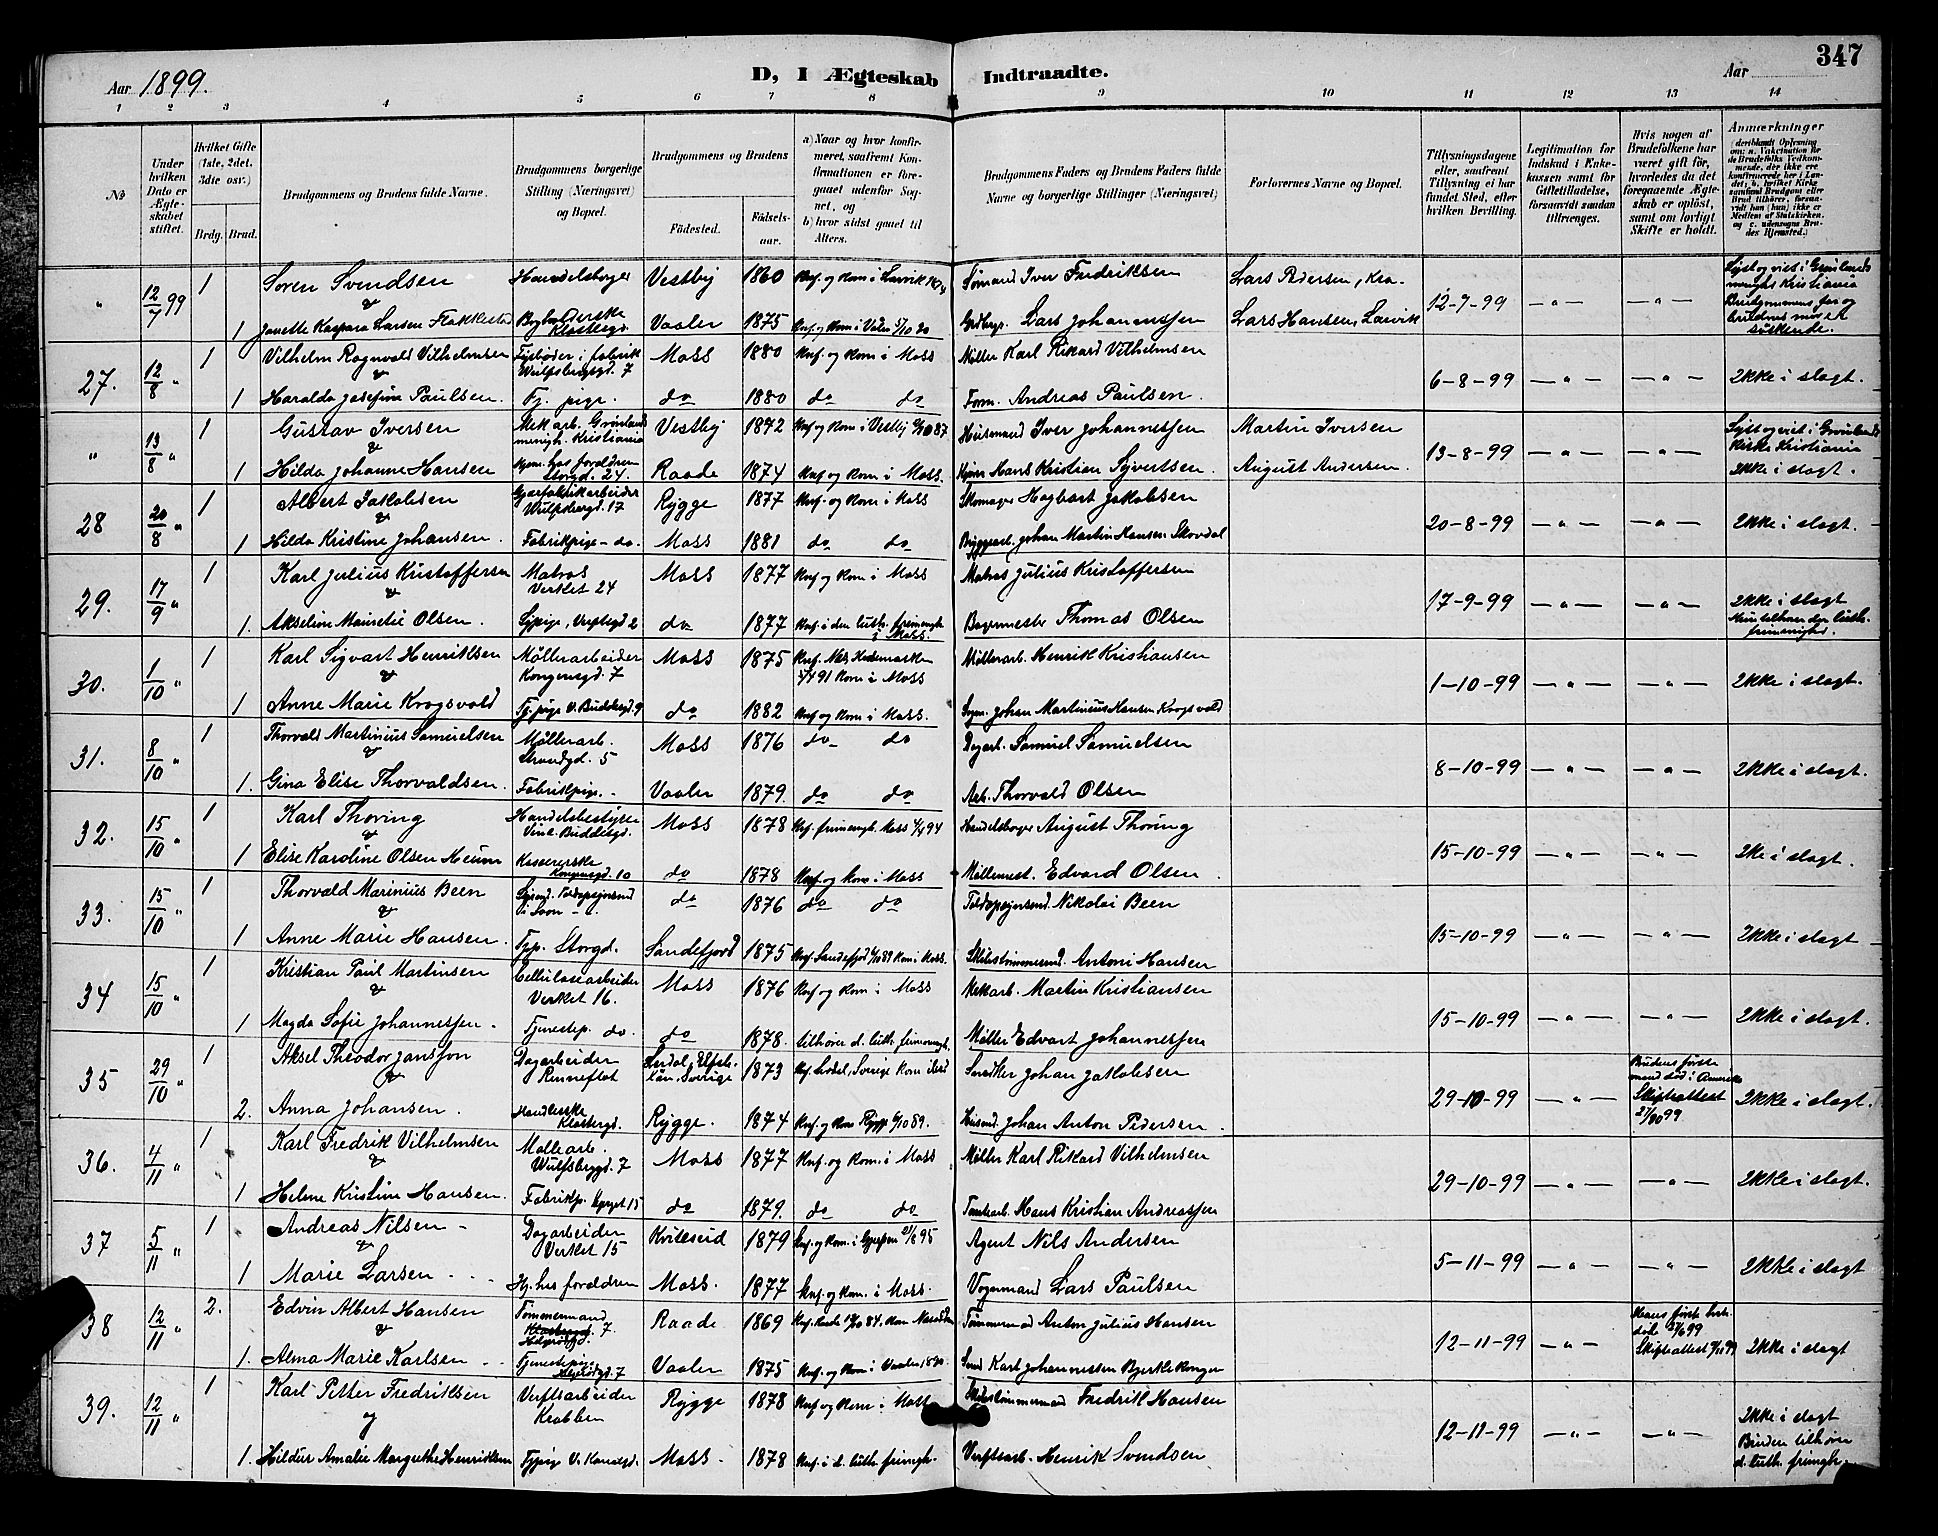 347
Aar 1899. D, I Ægteskab Indtraadte. Aar
1 2 3 4 5 6 7 8 9 10 11 12 13 14
No
Under hvilken Dato er Ægteskabet stiftet.
Hvilket Gifte (1ste, 2det, 3die osv.)
Brdg. Brud.
Brudgommens og Brudens fulde Navne.
Brudgommens borgerlige Stilling (Næringsvei) og Bopæl.
Brudgommens og Brudens
Fødested. Fødselsaar.
a) Naar og hvor konfirmeret, saafremt Konfirmationen er foregaaet udenfor Sognet, og
b) hvor sidst gaaet til Alters.
Brudgommens Faders og Brudens Faders fulde Navne og borgerlige Stillinger (Næringsvei)
Forlovernes Navne og Bopæl.
Tillysningsdagene eller, saafremt Tillysning ei har fundet Sted, efter hvilken Bevilling.
Legitimation for Indskud i Enkekassen samt for Giftetilladelse, forsaavidt saadan tiltrænges.
Hvis nogen af Brudefolkene har været gift før, hvorledes da det foregaaende Ægteskab er opløst, samt om lovligt Skifte er holdt.
Anmærkninger
" 12/7 99 1 Søren Svendsen Handelsborger Vestby 1860 Knf. og Kom i Larvik Sømand Iver Fredriksen Lars Pedersen, Kra. 12-7-99 —"— —"— Lyst og viet i Grønlands menigh. Kristiania
& Brudgommens far og brudens mor er søskende.
1 Janette Kaspara Larsen Flakkestad Bogholderske Vaaler 1875 Knf. og Kom i Vaaler 5/10 90 Grdbrgr. Lars Johannessen Lars Hansen, Larvik
27. 12/8 " 1 Vilhelm Ragnvald Vilhelmsen i fabrik Wulfsbergsgd. 7 Moss 1880 Knf. og Kom i Moss Møller Karl Rikard Vilhelmsen 6-8-99 —"— —"— Ikke i slægt.
&
1 Haralda Josefine Paulsen. Tj. pige. do 1880 do do Form. Andreas Paulsen.
" 13/8 " 1 Gustav Iversen Mek arb. Grønlands menigh. Kristiania Vestby 1872 Knf og Kom i Vestby 87 Husmand Iver Johannessen Martin Iversen 13-8-99 —"— —"— Lyst og viet i Grønlands Kirke Kristiania
&
1 Hilda Johanne Hansen hjem. hos forældren Storgd. 24. Raade 1874 Knf og Kom i Moss. Hans Kristian Syvertsen. August Andersen. Ikke i slægt.
28 20/8 " 1 Albert Jakobsen Wulfsbergd. 17 Rygge 1877 Knf. og Kom i Moss Skomager Hagbart Jakobsen 20-8-99 —"— —"— Ikke i slægt.
&
1 Hilda Kristine Johansen. Fabrikpige - do. Moss 1881 do do Bryggearb. Johan Martin Hansen Skovdal
29. 17/9 " 1 Karl Julius Kristoffersen Matros Verket 24 Moss 1877 Knf og Kom i Moss Matros Julius Kristoffersen 17-9-99 —"— —"— Ikke i slægt
&
1. Akseline Mauretie Olsen. Sypige, Verftsgd 2 do 1877 Knf. i den luth. frimenigh. i Moss. Bagermester Thomas Olsen Hun tilhører den luth. frimenighed.
30. 1/10 " 1 Karl Sigvart Henriksen Møllerarbeider Kongensgd. 7 Moss 1875 Knf. Nes Hedemarken 91 Kom i Moss Møllerarb. Henrik Kristiansen 1-10-99 —"— —"— Ikke i slægt.
&
1 Anne Marie Krogsvold Tj. pige V. Buddesgd. 9 do 1882 Knf og Kom i Moss. Johan Martinius Hansen Krogsvold
31. 8/10 " 1 Thorvald Martinius Samuelsen Møllerarb. Strandgd. 5 Moss 1876 do do Dagarb. Samuel Samuelsen 8-10-99 —"— —"— Ikke i slægt.
&
1. Gina Elise Thorvaldsen. Fabrikpige. Vaaler 1879. do do Arb. Thorvald Olsen
32. 15/10 " 1 Karl Thoring Handelsbestyrer Vine Buddesgd. Moss 1878 Knf. frimenigh. Moss 94 Handelsborger August Thoring 15-10-99 —"— —"— Ike i slægt.
&
1 Elise Karoline Olsen Heum Kassererske Kongensgd. 10 do 1878 Knf og Kom i Moss Møllemest. Edvard Olsen.
33. 15/10 " 1 Thorvald Marinius Been do 1876 do do Toldopsynsmd. Nikolai Been 15-10-99 —"— —"— Ikke i slægt
&
1 Anne Marie Hansen. Tjp. Storgd. Sandefjord 1875 Knf Sandefjd 89 Kom i Moss. Skibstømmermd. Antoni Hansen
34 15/10 " 1 Kristian Paul Martinsen Cellulosearbeider Verket 16. Moss 1876 Knf og Kom i Moss Mekarb. Martin Kristiansen 15-10-99 —"— —"— Ikke i slægt.
&
1 Magda Sofie Johannessen. Tjenestep. do. do 1878. tilhører d. luth. frimenigh. Møller Edvart Johannessen
35 29/10 " 1 Aksel Theodor Jansson Dagarbeider Renneflot Sverige 1873 Sverige Kom ilid Snedker Johan Jakobsen 29-10-99 —"— Brudens første mand død i Amerika Skifteattest 99 Ikke i slægt.
&
2. Anna Johansen. Handlerske Rygge. 1874 Knf. og Kom Rygge 89. Husmd. Johan Anton Pedersen.
36. 4/11 " 1 Karl Fredrik Vilhelmsen Møllearb. Wulfsbergd. 7 Moss 1877 Knf. og Kom. i Moss Møller Karl Rikard Vilhelmsen 29-10-99 —"— —"— Ikke i slægt.
&
1 Helene Kristine Hansen. Fabrikp. 15 do 1879. do do Hans Kristian Andreassen
37 5/11 " 1 Andreas Nilsen Dagarbeider Verket 15 Kviteseid 1879 Knf. og Kom. i Gjerpen 95 Agent Nils Andersen 5-11-99 —"— —"— Ikke i slægt
&
1 Marie Larsen Hj. hos forældren Moss. 1877 Knf. og Kom. i Moss. Vognmand Lars Paulsen
38 12/11 " 2. Edvin Albert Hansen Tømmermand 7 Raade 1869 84. Tømmermand Anton Julius Hansen 12-11-99 —"— Hans første hustru død 99 Skifteattest 99 Ikke i slægt
&
1. Alma Marie Karlsen Tjenestepige 7 Vaaler 1875 Knf. og Kom. i Vaaler 1890. Karl Johannessen Bjerkekongen
39. 12/11 " 1 Karl Petter Fredriksen Verftsarbeider Krabben Rygge 1878 Knf og Kom i Moss Skibstømmermand Fredrik Hansen 12-11-99 —"— —"— Ikke i slægt
og
1. Hildur Amalie Margrethe Henriksen Tjpige V. Kanalgd. Moss. 1878 Knf. i d. luth. frimgh. Verftsarb. Henrik Svendsen Bruden tilhører d. luth. frimgh.